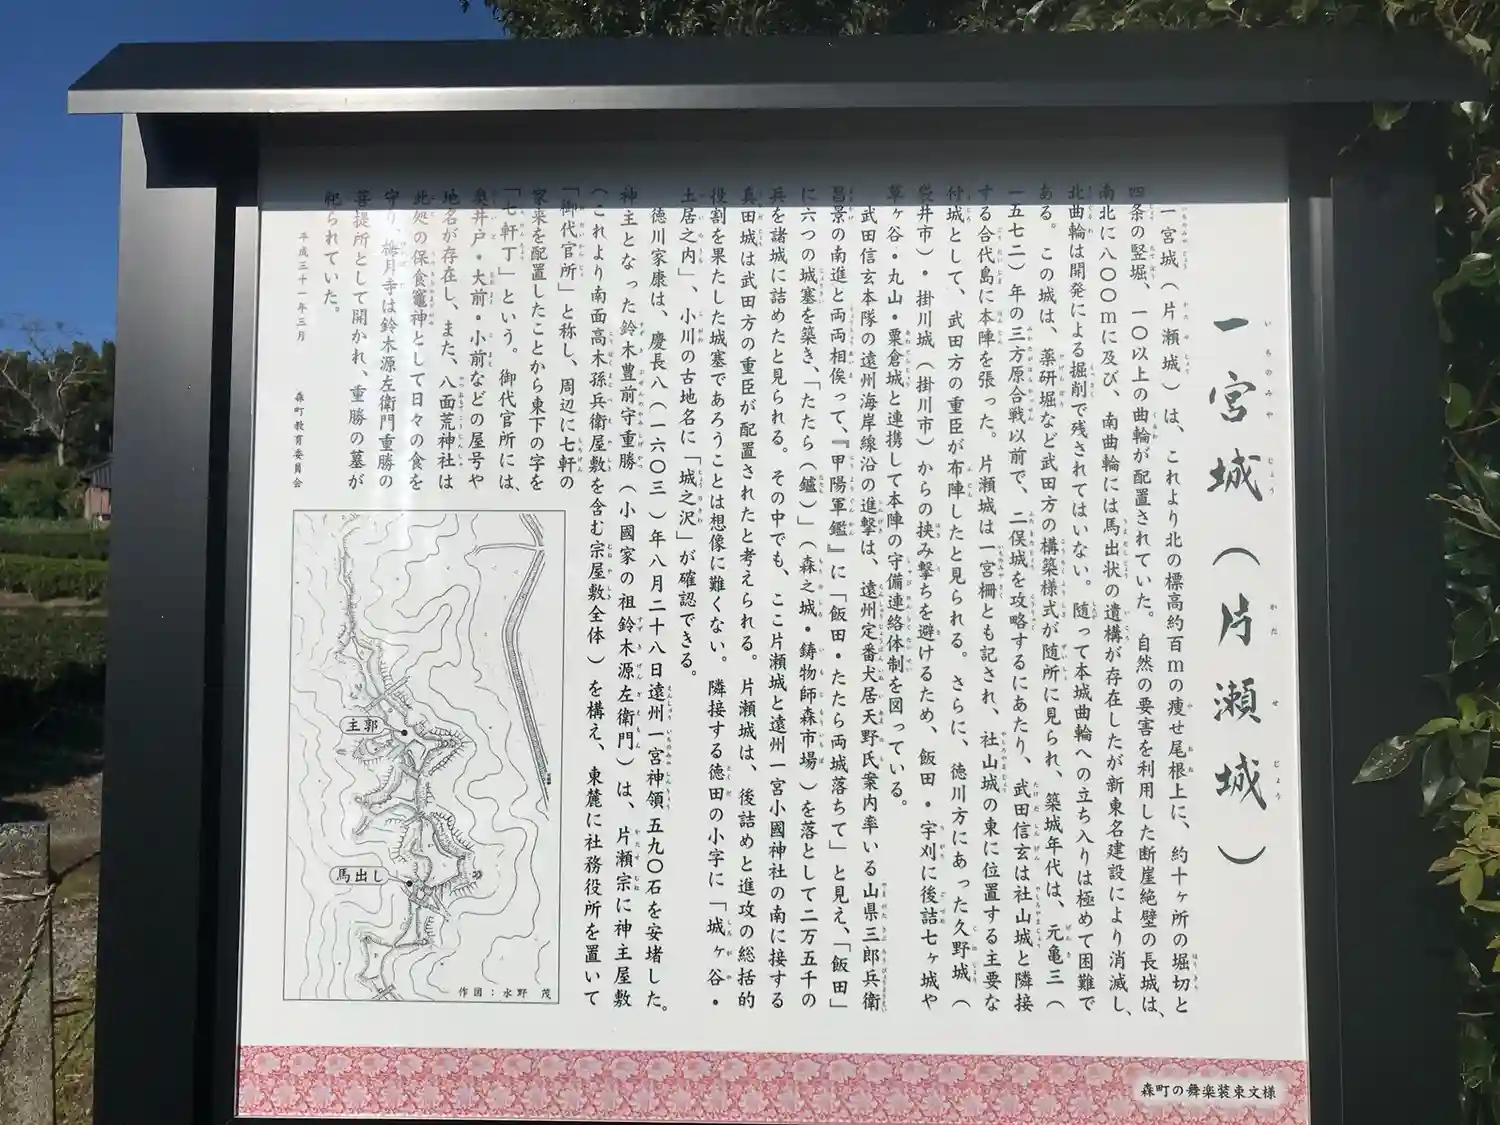 一宮城（片瀬城）
一宮城（片瀬城）は、これより北の標高約百ｍの痩せ尾根上に、約十ヶ所の堀切と
四条の竪堀、一〇以上の曲輪が配置されていた。自然の要害を利用した断崖絶壁の長城は、
南北に八〇〇ｍに及び、南曲輪には馬出状の遺構が存在したが新東名建設により消滅し、
北曲輪は開発による掘削で残されてはいない。随って本城曲輪への立ち入りは極めて困難で
ある。この城は、薬研堀など武田方の構築様式が随所に見られ、築城年代は、元亀三（
一五七二）年の三方原合戦以前で、二俣城を攻略するにあたり、武田信玄は社山城と隣接
する合代島に本陣を張った。片瀬城は一宮柵とも記され、社山城の東に位置する主要な
付城として、武田方の重臣が布陣したと見られる。さらに、徳川方にあった久野城（
袋井市）・掛川城（掛川市）からの挟み撃ちを避けるため、飯田・宇刈に後詰七ヶ城や
草ヶ谷・丸山・粟倉城と連携して本陣の守備連絡体制を図っている。
武田信玄本隊の遠州海岸線沿の進撃は、遠州定番犬居天野氏案内率いる山県三郎兵衛
昌景の南進と両両相俟って、『甲陽軍鑑』に「飯田・たたら両城落ちて」と見え、「飯田」
に六つの城塞を築き、「たたら（鑪）」（森之城・鋳物師森市場）を落として二万五千の
兵を諸城に詰めたと見られる。その中でも、ここ片瀬城と遠州一宮小國神社の南に接する
真田城は武田方の重臣が配置されたと考えられる。片瀬城は、後詰めと進攻の総括的
役割を果たした城塞であろうことは想像に難くない。隣接する徳田の小字に「城ヶ谷・
土居之内」、小川の古地名に「城之沢」が確認できる。
徳川家康は、慶長八（一六〇三）年八月二十八日遠州一宮神領五九〇石を安堵した。
神主となった鈴木豊前守重勝（小國家の祖鈴木源左衛門）は、片瀬宗に神主屋敷
（これより南面高木孫兵衛屋敷を含む宗屋敷全体）を構え、東麓に社務役所を置いて
「御代官所」と称し、周辺に七軒の
家来を配置したことから東下の字を
「七軒丁」という。御代官所には、
奥井戸・大前・小前などの屋号や
地名が存在し、また、八面荒神社は
此処の保食竈神として日々の食を
守り、梅月寺は鈴木源左衛門重勝の
菩提所として開かれ、重勝の墓が
祀られていた。
平成三十一年三月　森町教育委員会
主郭
馬出し
作図：水野　茂
森町の舞楽装束文様